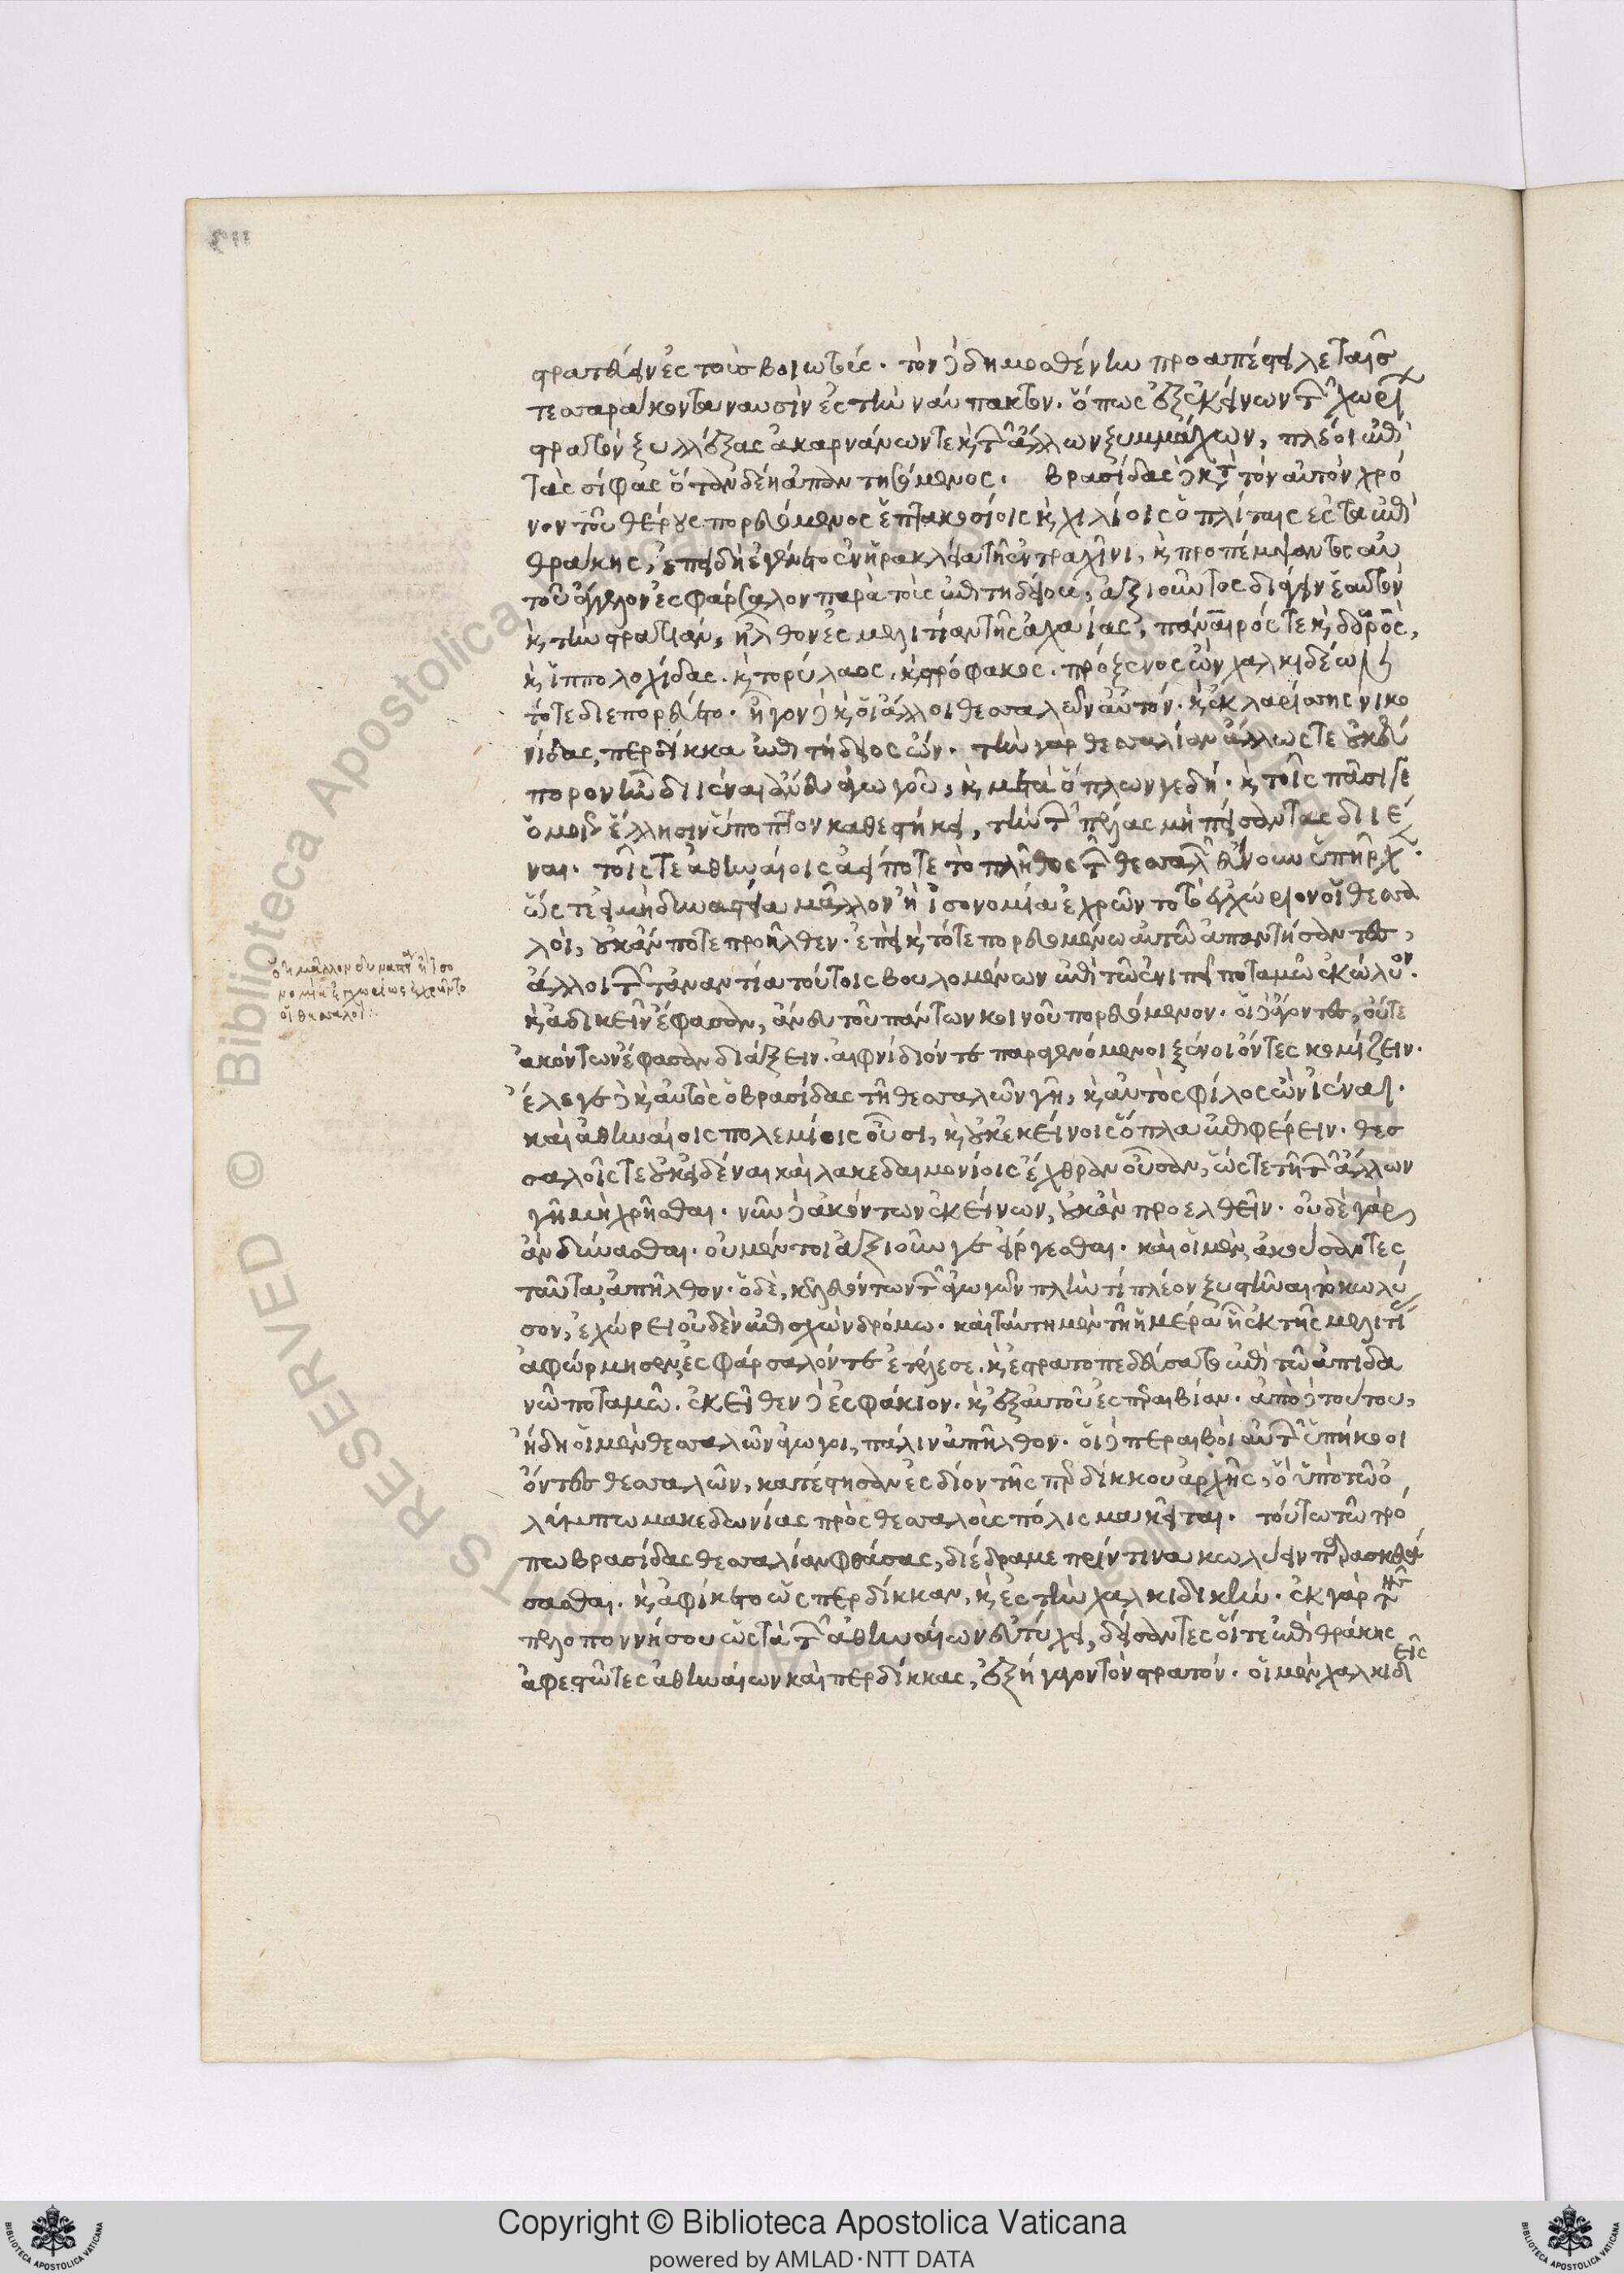 στρατεύειν ἐς τοὺς βοιωτούς. τὸν δὲ δημοσθένην προαπέστειλε ταῖς
τεσσαράκοντα ναυσὶν ἐς τὴν ναύπακτον. ὅπως ἐξ ἐκείνων τῶν χωρίων
στρατὸν ξυλλέξας ἀκαρνάνων τε καὶ τῶν ἄλλων ξυμμάχων, πλέοι ἐπὶ
τὰς σίφας ὡς προδοθησομένας
βρασίδας δὲ κατὰ τὸν αὐτὸν χρό
νον τοῦ θέρους πορευόμενος ἑπτακοσίοις καὶ χιλίοις ὁπλίταις ἐς τὰ ἐπὶ
θράκης, ἐπειδὴ ἐγένετο ἐν ἡρακλείᾳ τῇ ἐν τραχῖνι, καὶ προπέμψαντος αὐ
τοῦ ἄγγελον ἐς φάρσαλον παρὰ τοὺς ἐπιτηδείους, ἀξιοῦντος διάγειν ἑαυτὸν
καὶ τὴν στρατιάν, ἦλθον ἐς μελιτίαν τῆς ἀχαΐας, πάναιρός τε καὶ δῶρος,
καὶ ἱππολοχίδας. καὶ τορύλαος. καὶ στρόφακος. πρόξενος ὢν χαλκιδέων
τότε δὲ ἐπορεύετο. ἦγον δὲ καὶ οἱ ἄλλοι θεσσαλῶν αὐτόν. καὶ ἐκ λαρίσης νικο
νίδας, περδίκκᾳ ἐπιτήδειος ὤν. τὴν γὰρ θεσσαλίαν ἄλλως τε οὐκ εὔ
πορον ἦν διιέναι ἄνευ ἀγωγοῦ, καὶ μετὰ ὅπλων γε δή. καὶ τοῖς πᾶσί γε
ὁμοίως ἕλλησιν ὕποπτον καθεστήκει, τὴν τῶν πέλας μὴ πείσαντας διιέ
ναι. τοῖς τε ἀθηναίοις ἀεί ποτε τὸ πλῆθος τῶν θεσσαλῶν εὔνουν ὑπῆρχεν.
ὥστε εἰ μὴ δυναστείᾳ μᾶλλον ἢ ἰσονομίᾳ ἐχρῶντο τὸ ἐγχώριον οἱ θεσσα
λοὶ, οὐκ ἄν ποτε προῆλθεν. ἐπεὶ καὶ τότε πορευομένῳ αὐτῷ ἀπαντήσαντες,
ἄλλοι τῶν τἀναντία τούτοις βουλομένων ἐπὶ τῷ ἐνιπεῖ ποταμῷ ἐκώλυον.
καὶ ἀδικεῖν ἔφασαν, ἄνευ τοῦ πάντων κοινοῦ πορευόμενον. οἱ δὲ ἄγοντες, οὔτε
ἀκόντων ἔφασαν διάξειν. αἰφνίδιόν τε παραγενόμενοι ξένοι ὄντες κομίζειν.
ἔλεγε δὲ καὶ αὐτὸς ὁ βρασίδας τῇ θεσσαλῶν γῇ, καὶ αὐτὸς φίλος ὢν ἰέναι.
καὶ ἀθηναίοις πολεμίοις οὖσι, καὶ οὐκ ἐκείνοις ὅπλα ἐπιφέρειν. θεσ
σαλοῖς τε οὐκ εἰδέναι καὶ λακεδαιμονίοις ἔχθραν οὖσαν, ὥστε τῇ τῶν ἄλλων
γῇ μὴ χρῆσθαι. νῦν δὲ ἀκόντων ἐκείνων, οὐκ ἂν προελθεῖν. οὐδὲ γὰρ
ἂν δύνασθαι. οὐ μέντοι ἀξιοῦν γε εἴργεσθαι. καὶ οἱ μὲν ἀκούσαντες
ταῦτα, ἀπῆλθον. ὁ δὲ, κελευόντων τῶν ἀγωγῶν πρίν τι πλέον ξυστῆναι τὸ κωλύ
σον, ἐχώρει οὐδὲν ἐπισχὼν δρόμῳ. καὶ ταύτῃ μὲν τῇ ἡμέρᾳ ᾗ ἐκ τῆς μελιτί
ἀφώρμησεν, ἐς φάρσαλόν τε ἐτέλεσε. καὶ ἐστρατοπεδεύσατο ἐπὶ τῷ ἀπιδα
νῷ ποταμῷ. ἐκεῖθεν δὲ ἐς φάκιον. καὶ ἐξ αὐτοῦ ἐς περαιβίαν. ἀπὸ δὲ τούτου,
ἤδη οἱ μὲν θεσσαλῶν ἀγωγοι, πάλιν ἀπῆλθον. οἱ δὲ περαιβοὶ αὐτῶν ὑπήκοοι
ὄντες θεσσαλῶν, κατέστησαν ἐς δίον τῆς περδίκκου ἀρχῆς, ὃ ὑπὸ τῷ ὀ
λύμπῳ μακεδονίας πρὸς θεσσαλοὺς πόλισμα κεῖται. τούτῳ τῷ τρό
πῳ βρασίδας θεσσαλίαν φθάσας, διέδραμε πρίν τινα κωλύειν παρασκευά
σασθαι. καὶ ἀφίκετο ὡς περδίκκαν, καὶ ἐς τὴν χαλκιδικήν. ἐκ γὰρ τῆς
πελοποννήσου ὡς τὰ τῶν ἀθηναίων εὐτύχει, δείσαντες οἵ τε ἐπὶ θράκης
ἀφεστῶτες ἀθηναίων καὶ περδίκκας, ἐξήγαγον τὸν στρατόν. οἱ μὲν χαλκιδεῖς
οἱ θεσσαλοί